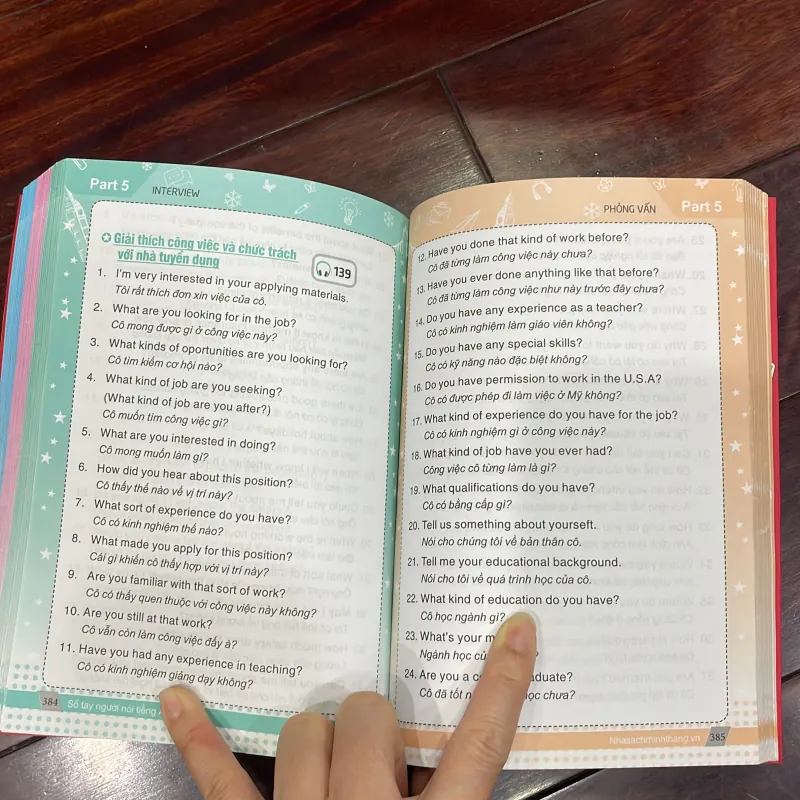 Part 5
INTERVIEW
Giải thích công việc và chức trách
với nhà tuyển dụng
139
1. I'm very interested in your applying materials.
Tôi rất thích đơn xin việc của cô.
2. What are you looking for in the job?
Cô mong được gì ở công việc này?
3. What kinds of oportunities are you looking for?
Cô tìm kiếm cơ hội nào?
4. What kind of job are you seeking?
(What kind of job are you after?)
Cô muốn tìm công việc gì?
5. What are you interested in doing?
Cô mong muốn làm gì?
6. How did you hear about this position?
Cô thấy thế nào về vị trí này?
7. What sort of experience do you have?
Cô có kinh nghiệm thế nào?
8. What made you apply for this position?
Cái gì khiến cô thấy hợp với vị trí này?
9. Are you familiar with that sort of work?
Cô có thấy quen thuộc với công việc này không?
10. Are you still at that work?
Cô vẫn còn làm công việc đấy à?
11. Have you had any experience in teaching?
Cô có kinh nghiệm giảng dạy không?
384
Sổ tay người nói tiếng
PHỎNG VẤN
Part 5
12. Have you done that kind of work before?
Cô đã từng làm công việc này chưa?
13. Have you ever done anything like that before?
Cô đã từng làm công việc như này trước đây chưa?
14. Do you have any experience as a teacher?
Cô có kinh nghiệm làm giáo viên không?
15. Do you have any special skills?
Cô có kỹ năng nào đặc biệt không?
16. Do you have permission to work in the U.S.A?
Cô có được phép đi làm việc ở Mỹ không?
17. What kind of experience do you have for the job?
Cô có kinh nghiệm gì ở công việc này?
18. What kind of job have you ever had?
Công việc cô từng làm là gì?
19. What qualifications do you have?
Cô có bằng cấp gì?
20. Tell us something about yourseft.
Nói cho chúng tôi về bản thân cô.
21. Tell me your educational background.
Nói cho tôi về quá trình học của cô.
22. What kind of education do you have?
Cô học ngành gì?
23. What's your
Ngành học ?
24. Are you a
Cô đã tốt học chưa?
Nhasachminhthang.vn
385